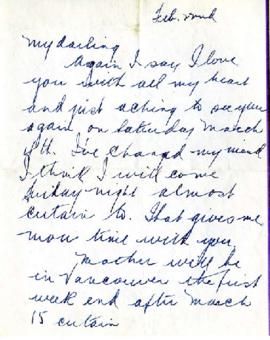 Feb. 22nd
My darling
Again I say I love
you with all my heart
and just aching to see you
again on Saturday March
I've changed my mind
I think I will come
Friday night almost
curtain to. That gives me
more time with you.
Mother will be
in Vancouver the first
week end after March
15 curtain